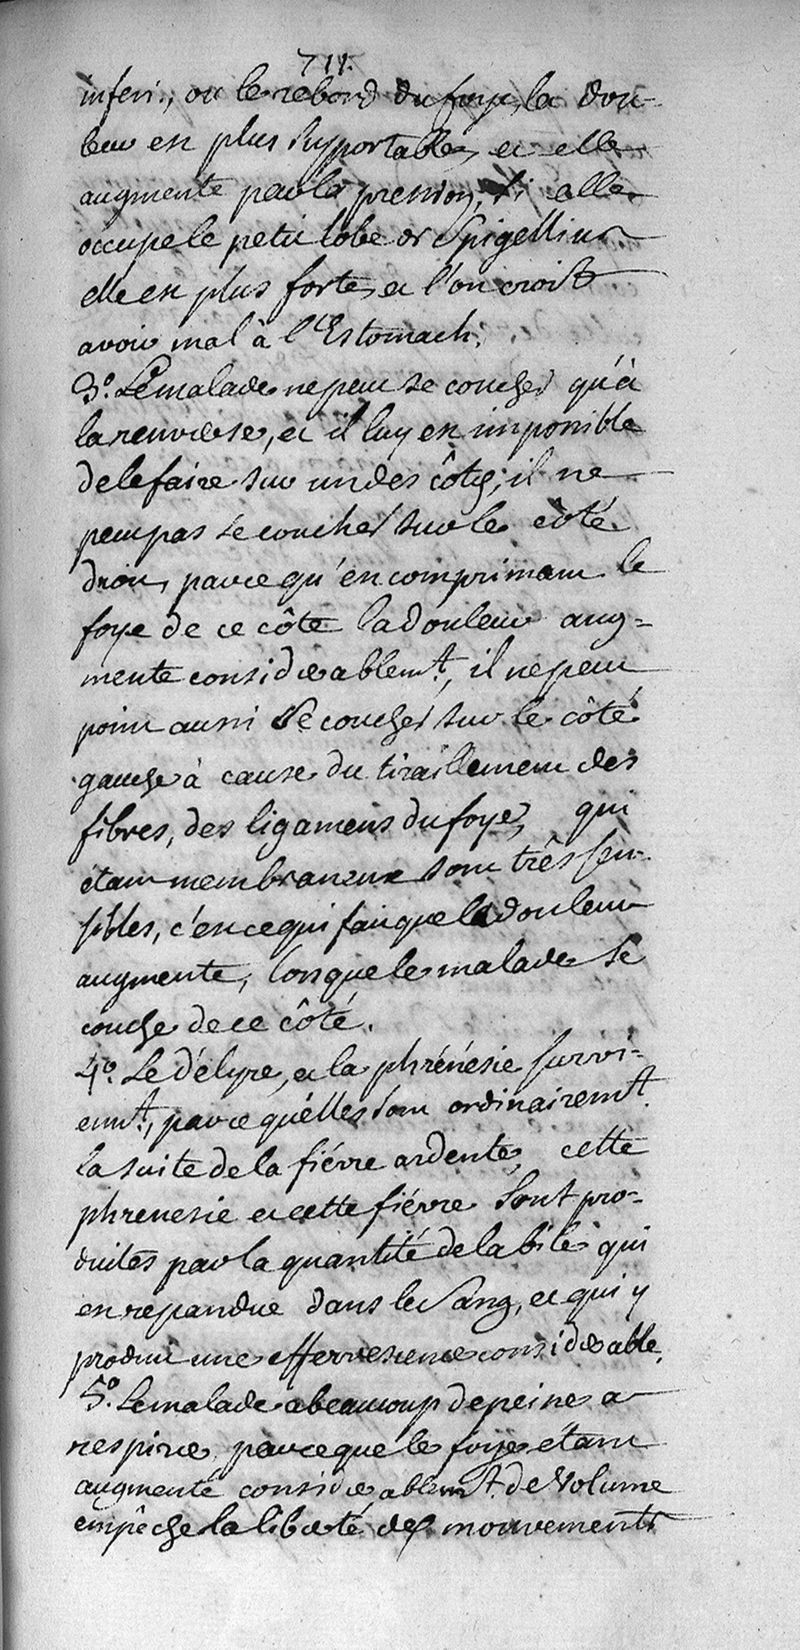 711.
inferi., ou le rebord du foye, la dou-
leur est plus supportable, et elle
augmente par la pression, si elle
occupe le petit lobe de Spigellius
elle est plus forte, et l'on croist
avoir mal à l'Estomach.
3°. Le malade ne peut se coucher qu'à
la renverse, et il luy est impossible
de le faire sur un des côtés; il ne
peut pas se coucher sur le côté
droit, parce qu'en comprimant le
foye de ce côté la douleur aug=
mente considerablemt., il ne peut
point aussi se coucher sur le côté
gauche à cause du tiraillement des
fibres, des ligamens du foye, qui
étant membraneux sont très sen-
sibles, c'est ce qui fait que la douleur
augmente, lorsque le malade se
couche de ce côté.
4°. Le délyre, et la phrénésie survi-
ennt., parce qu'elles sont ordinairemt.
la suite de la fiévre ardente, cette
phrenesie et cette fiévre sont pro-
duites par la quantité de la bile qui
est repandue dans le Sang, et qui y
produit une effervescence considerable.
5°. Le malade a beaucoup de peine a
respirer, parce que le foye étant
augmenté considerablemt. de Volume
empêche la liberté des mouvements